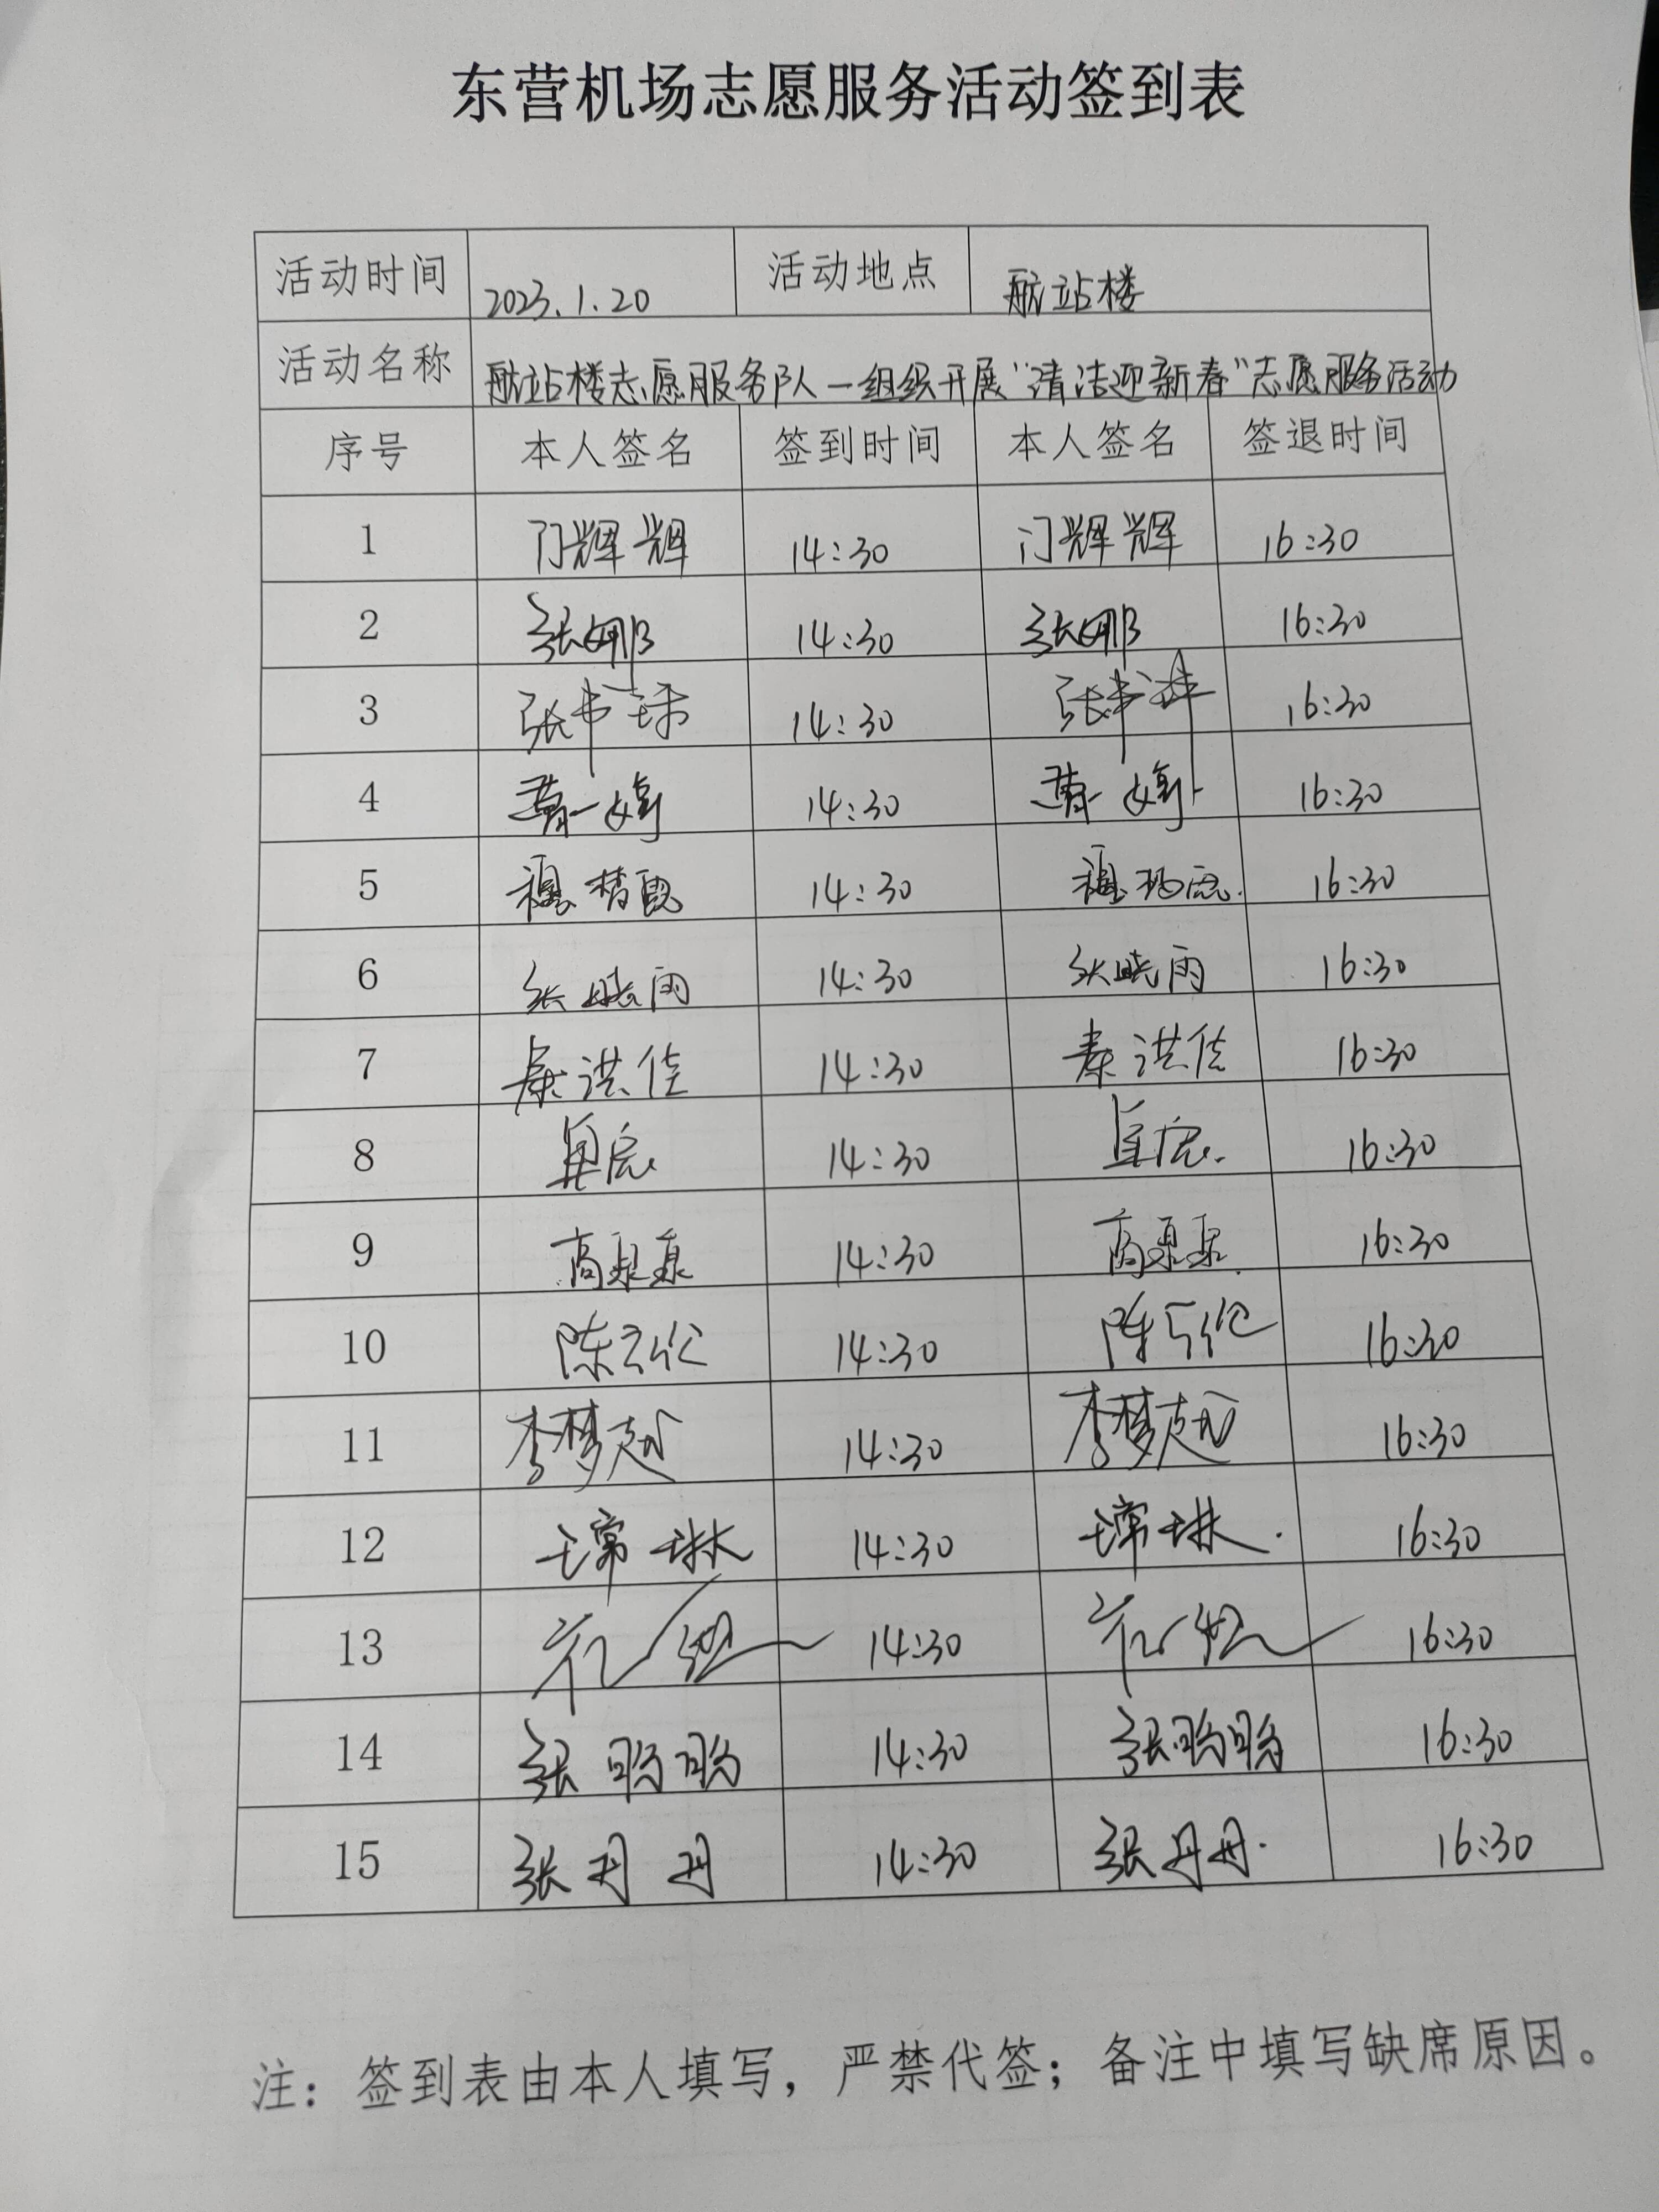 东营机场志愿服务活动签到表
活动时间 2023.1.20 活动地点 航站楼
活动名称 航站楼志愿服务队一组织开展“清洁迎新春”志愿服务活动
序号 本人签名 签到时间 本人签名 签退时间
1 门辉辉 14:30 门辉辉 16:30
2 张娜 14:30 张娜 16:30
3 张书 14:30 张书 16:30
4 14:30 16:30
5 14:30 16:30
6 张晓雨 14:30 张晓雨 16:30
7 秦洪佳 14:30 秦洪佳 16:30
8 14:30 16:30
9 高泉泉 14:30 高泉泉 16:30
10 陈 14:30 陈 16:30
11 李梦超 14:30 李梦超 16:30
12 琳 14:30 琳 16:30
13 14:30 16:30
14 张盼盼 14:30 张盼盼 16:30
15 张丹丹 14:30 张丹丹 16:30
注：签到表由本人填写，严禁代签；备注中填写缺席原因。